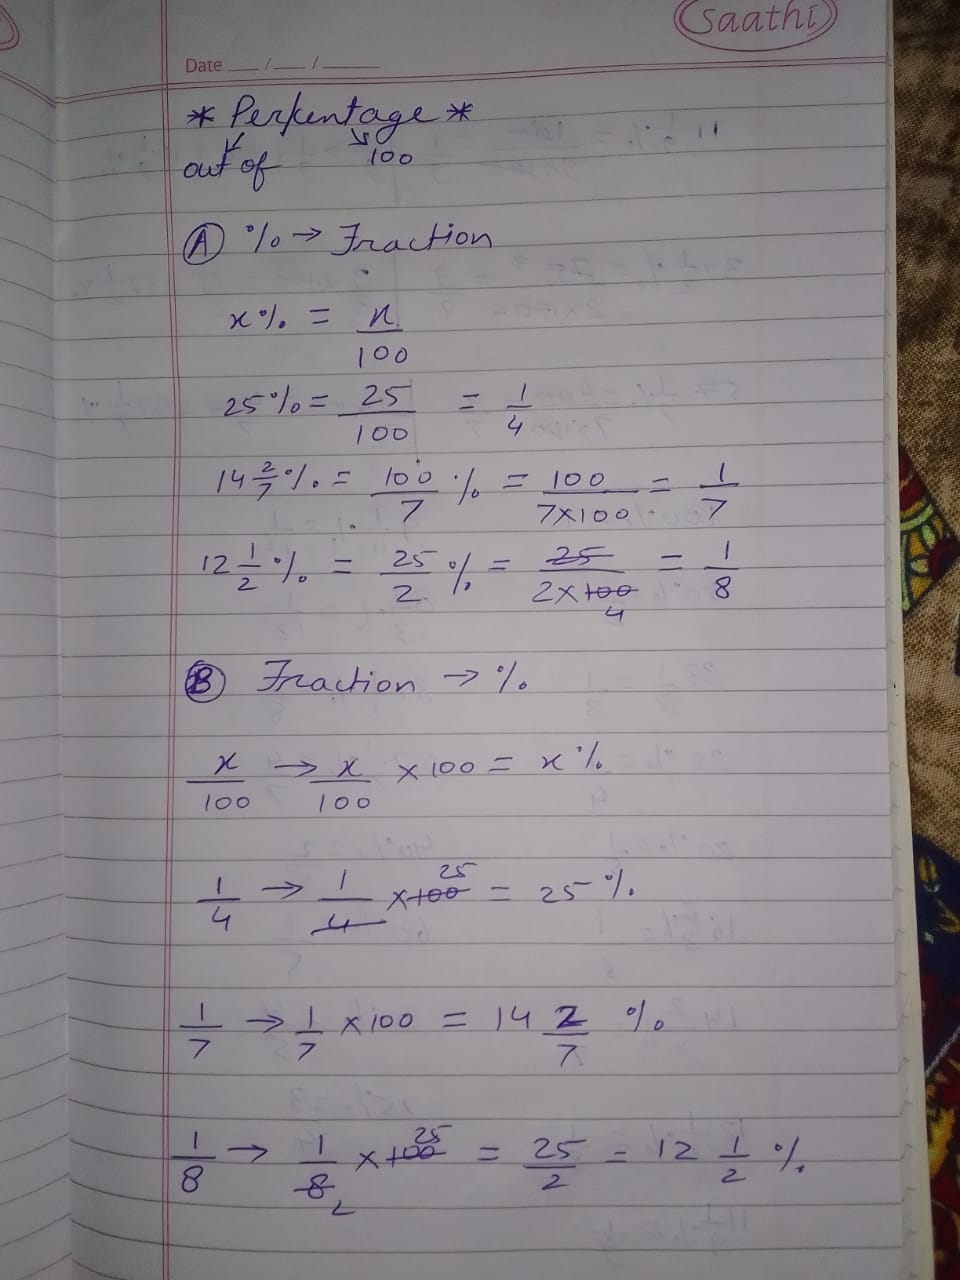 saathi
Date __/__/____
* Perkentage *
out of 100
(A) % → Fraction
x% = x/100
25% = 25/100 = 1/4
14 2/7 % = 100/7 % = 100/7×100 = 1/7
12 1/2 % = 25/2 % = 25/2×100 4 = 1/8
(B) Fraction → %
x/100 → x/100 × 100 = x%
1/4 → 1/4 × 100 25 = 25%
1/7 → 1/7 × 100 = 14 2/7 %
1/8 → 1/8 2 × 100 25 = 25/2 = 12 1/2 %